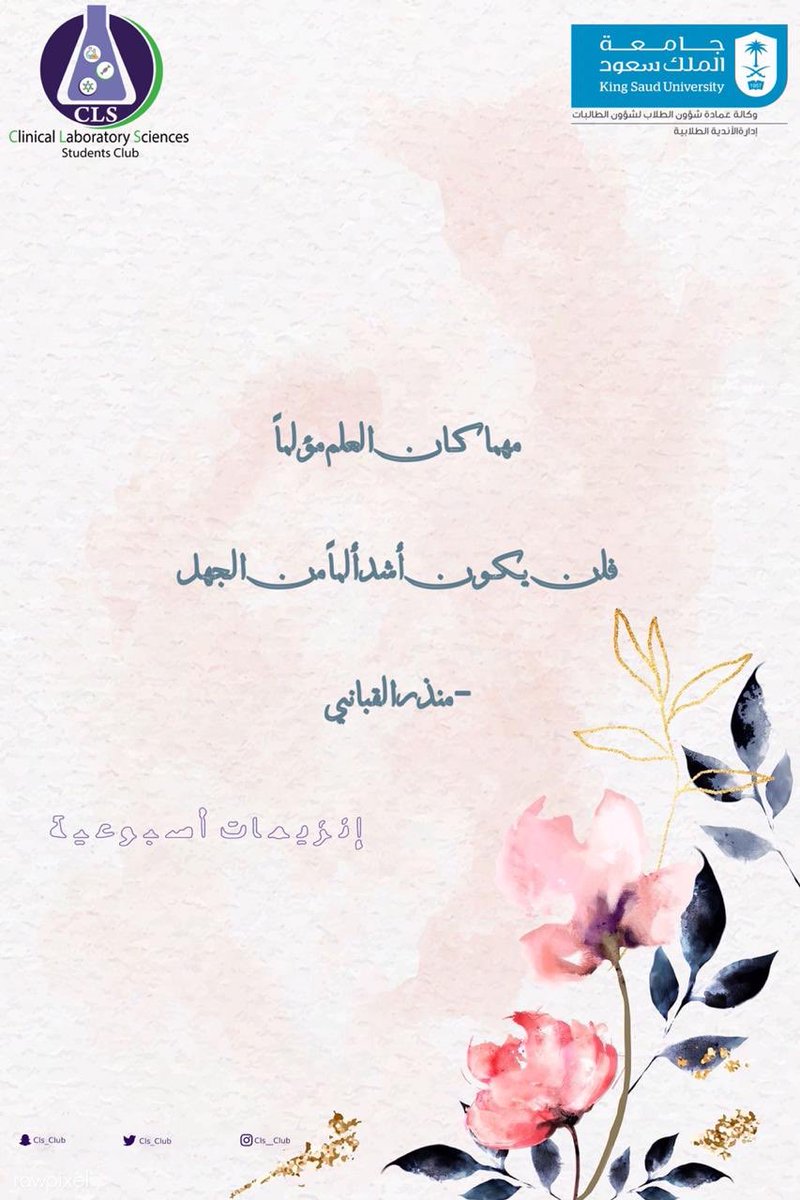 CLS
Clinical Laboratory Sciences
Students Club
جامعة
الملك سعود
King Saud University
1957
وكالة عمادة شؤون الطلاب لشؤون الطالبات
إدارة الأندية الطلابية
مهما كان العلم مؤلماً
فلن يكون أشد ألماً من الجهل
-منذر القباني
إنزيمات أسبوعية
Cls_Club
Cls_Club
Cls__Club
rawpixel